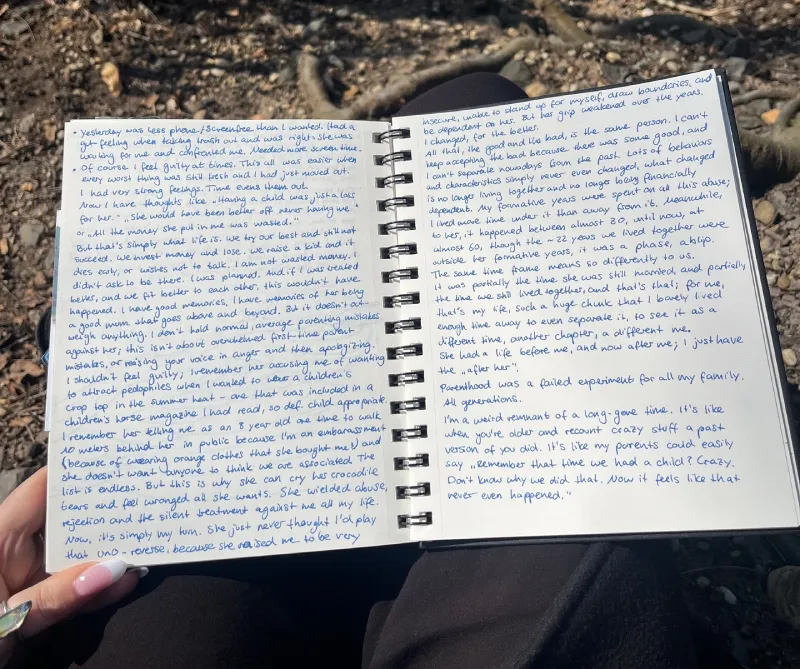 • Yesterday was less phone/screenfree than I wanted. Had a
gut feeling when taking trash out and was right. She was
waiting for me and confronted me. Needed more screen time.
• Of course I feel guilty at times. This all was easier when
every worst thing was still fresh and I had just moved out.
I had very strong feelings. Time evens them out.
Now I have thoughts like „Having a child was just a loss
for her." - „She would have been better off never having me."
or „All the money she put in me was wasted."
But that's simply what life is. We try our best and still not
succeed. We invest money and lose. We raise a kid and it
dies early, or wishes not to talk. I am not wasted money. I
didn't ask to be there. I was planned. And if I was treated
better, and we fit to each other, this wouldn't have
happened. I have good memories, I have memories of her being
a good mom that goes above and beyond. But it doesn't out-
weigh anything. I don't hold normal, average parenting mistakes
against her; this isn't about overwhelmed first-time parent
mistakes, or raising your voice in anger and then apologizing.
I shouldn't feel guilty; I remember her accusing me of wanting
to attract pedophiles when I wanted to wear a children's
crop top in the summer heat - one that was included in a
children's horse magazine I had read, so def. child appropriate.
I remember her telling me as an 8 year old one time to walk
10 meters behind her in public because I'm an embarassment
(because of wearing orange clothes that she bought me!) and
she doesn't want anyone to think we are associated. The
list is endless. But this is why she can cry her crocodile
tears and feel wronged all she wants. She wielded abuse,
rejection and the silent treatment against me all my life.
Now, it's simply my turn. She just never thought I'd play
that uno-reverse, because she raised me to be very
insecure, unable to stand up for myself, draw boundaries, and
be dependent on her. But her grip weakened over the years.
I changed, for the better.
All that, the good and the bad, is the same person. I can't
keep accepting the bad because there was some good, and
can't separate nowadays from the past. Lots of behaviors
and characteristics simply never even changed, what changed
is no longer living together and no longer being financially
dependent. My formative years were spent on all this abuse;
I lived more time under it than away from it. Meanwhile,
to her, it happened between almost 30, until now, at
almost 60, though the ~22 years we lived together were
outside her formative years, it was a phase, a blip.
The same time frame means so differently to us.
It was partially the time she was still married, and partially
the time we still lived together, and that's that; for me,
that's my life, such a huge chunk that I barely lived
enough time away to even separate it, to see it as a
different time, another chapter, a different me.
She had a life before me, and now after me; I just have
the „after her".
Parenthood was a failed experiment for all my family.
All generations.
I'm a weird remnant of a long-gone time. It's like
when you're older and recount crazy stuff a past
version of you did. It's like my parents could easily
say „Remember that time we had a child? Crazy.
Don't know why we did that. Now it feels like that
never even happened."